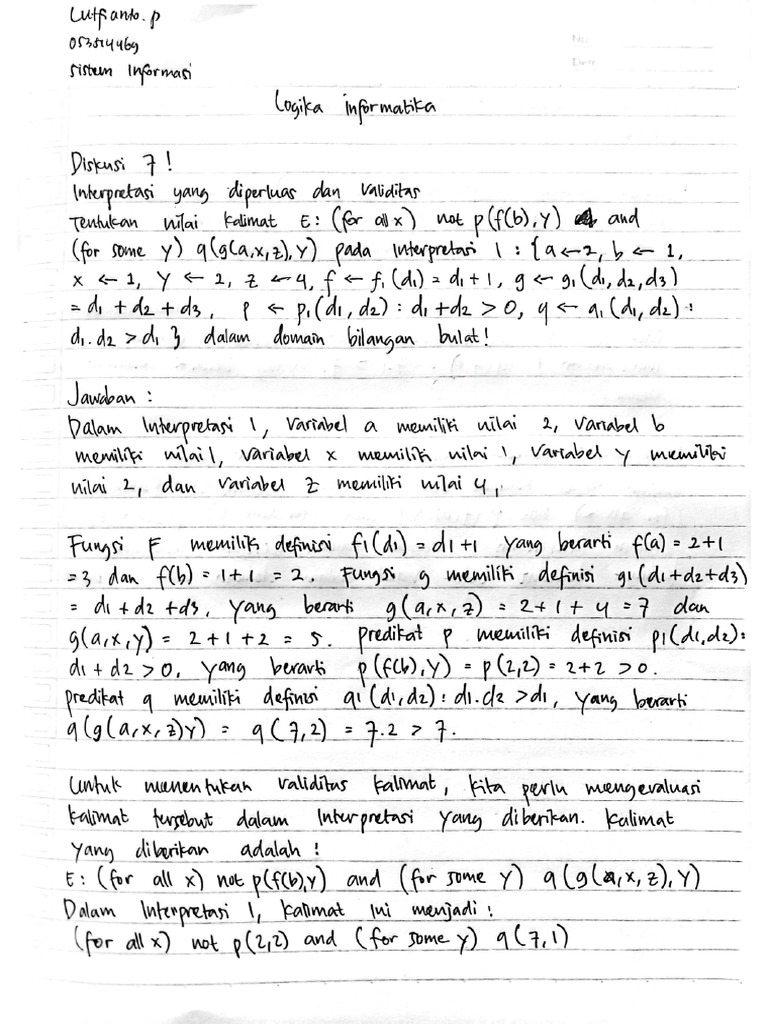 Lutfianto.p
053514469
Sistem Informasi
No:
Date:
Logika informatika
Diskusi 7!
Interpretasi yang diperluas dan validitas
Tentukan nilai kalimat E: (for all x) not p(f(b),y) and
(for some y) q(g(a,x,z),y) pada interpretasi 1 : {a ← 2, b ← 1,
x ← 1, y ← 2, z ← 4, f ← f1(d1) = d1+1, g ← g1(d1,d2,d3)
= d1 + d2 + d3, p ← p1(d1,d2) : d1+d2 > 0, q ← q1(d1,d2) :
d1.d2 > d1 } dalam domain bilangan bulat!
Jawaban :
Dalam Interpretasi 1, variabel a memiliki nilai 2, variabel b
memiliki nilai 1, variabel x memiliki nilai 1, variabel y memiliki
nilai 2, dan variabel z memiliki nilai 4,
Fungsi F memiliki definisi f1(d1) = d1+1 yang berarti f(a) = 2+1
= 3 dan f(b) = 1+1 = 2. Fungsi g memiliki definisi g1(d1+d2+d3)
= d1 + d2 + d3, yang berarti g(a,x,z) = 2+1+4 = 7 dan
g(a,x,y) = 2+1+2 = 5. predikat p memiliki definisi p1(d1,d2):
d1 + d2 > 0, yang berarti p(f(b),y) = p(2,2) = 2+2 > 0.
predikat q memiliki definisi q1(d1,d2) : d1.d2 > d1, yang berarti
q(g(a,x,z)y) = q(7,2) = 7.2 > 7.
Untuk menentukan validitas kalimat, kita perlu mengevaluasi
kalimat tersebut dalam Interpretasi yang diberikan. Kalimat
yang diberikan adalah !
E: (for all x) not p(f(b),y) and (for some y) q(g(a,x,z),y)
Dalam Interpretasi 1, kalimat ini menjadi :
(for all x) not p(2,2) and (for some y) q(7,1)